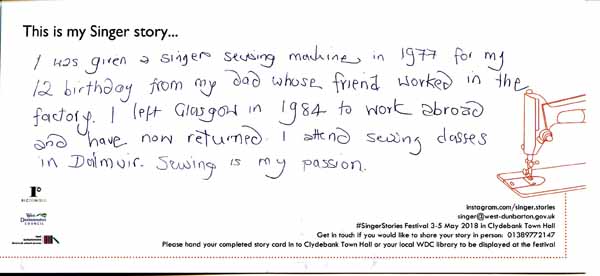 This is my Singer story...
I was given a singer sewing machine in 1977 for my
12 birthday from my dad whose friend worked in the
factory. I left Glasgow in 1984 to work abroad
and have now returned. I attend sewing classes
in Dalmuir. Sewing is my passion.
West
Dunbartonshire
COUNCIL
instagram.com/singer.stories
singer@west-dunbarton.gov.uk
#SingerStories Festival 3-5 May 2018 in Clydebank Town Hall
Get in touch if you would like to share your story in person: 01389772147
Please hand your completed story card in to Clydebank Town Hall or your local WDC library to be displayed at the festival